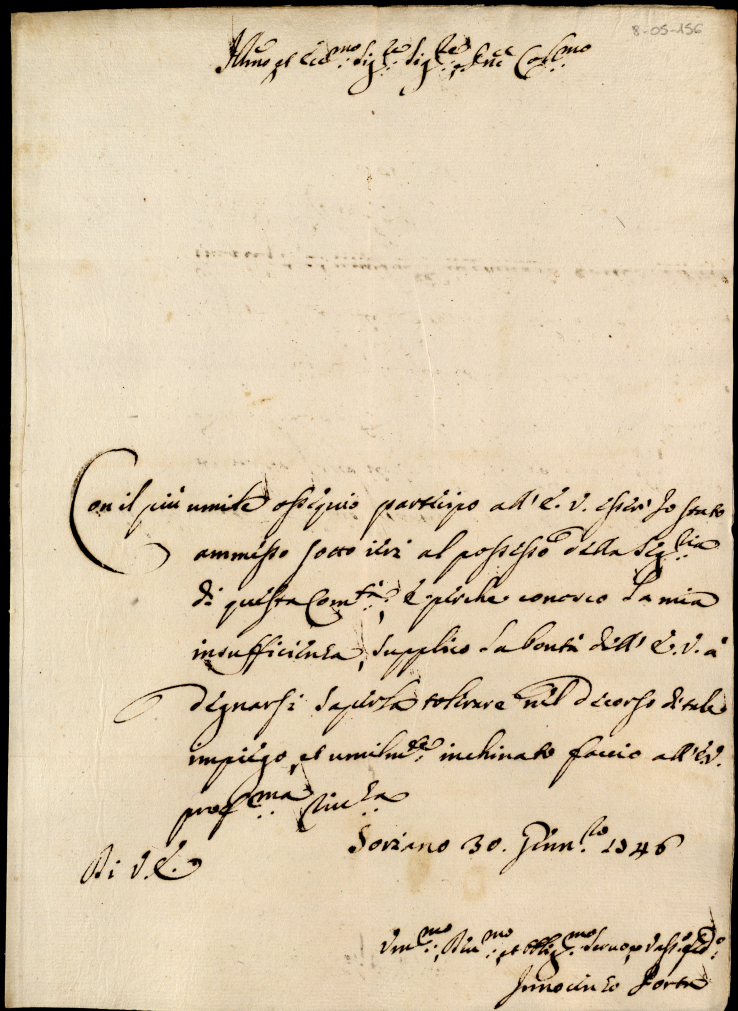 8-05-156
Ill.mo et Ecc.mo Sig.re Sig.re P.ne Col.mo
Con il più umile ossequio partecipo all' E. V. esser Io stato
ammesso sotto ieri al possesso della Seg.ria
di questa Com.tà, e perche conosco la mia
insufficienza, supplico la bontà dell' E. V. à
degnarsi saperla tolerare nel decorso di tale
impiego, et umilm.te inchinato faccio all' E.V.
prof.ma Riu.za
Soriano 30. Genn.ro 1746
Di V. E.
Um.mo, Diu.mo, et Obblig.mo Seruo, e Vass.o
Innocenzo Porta